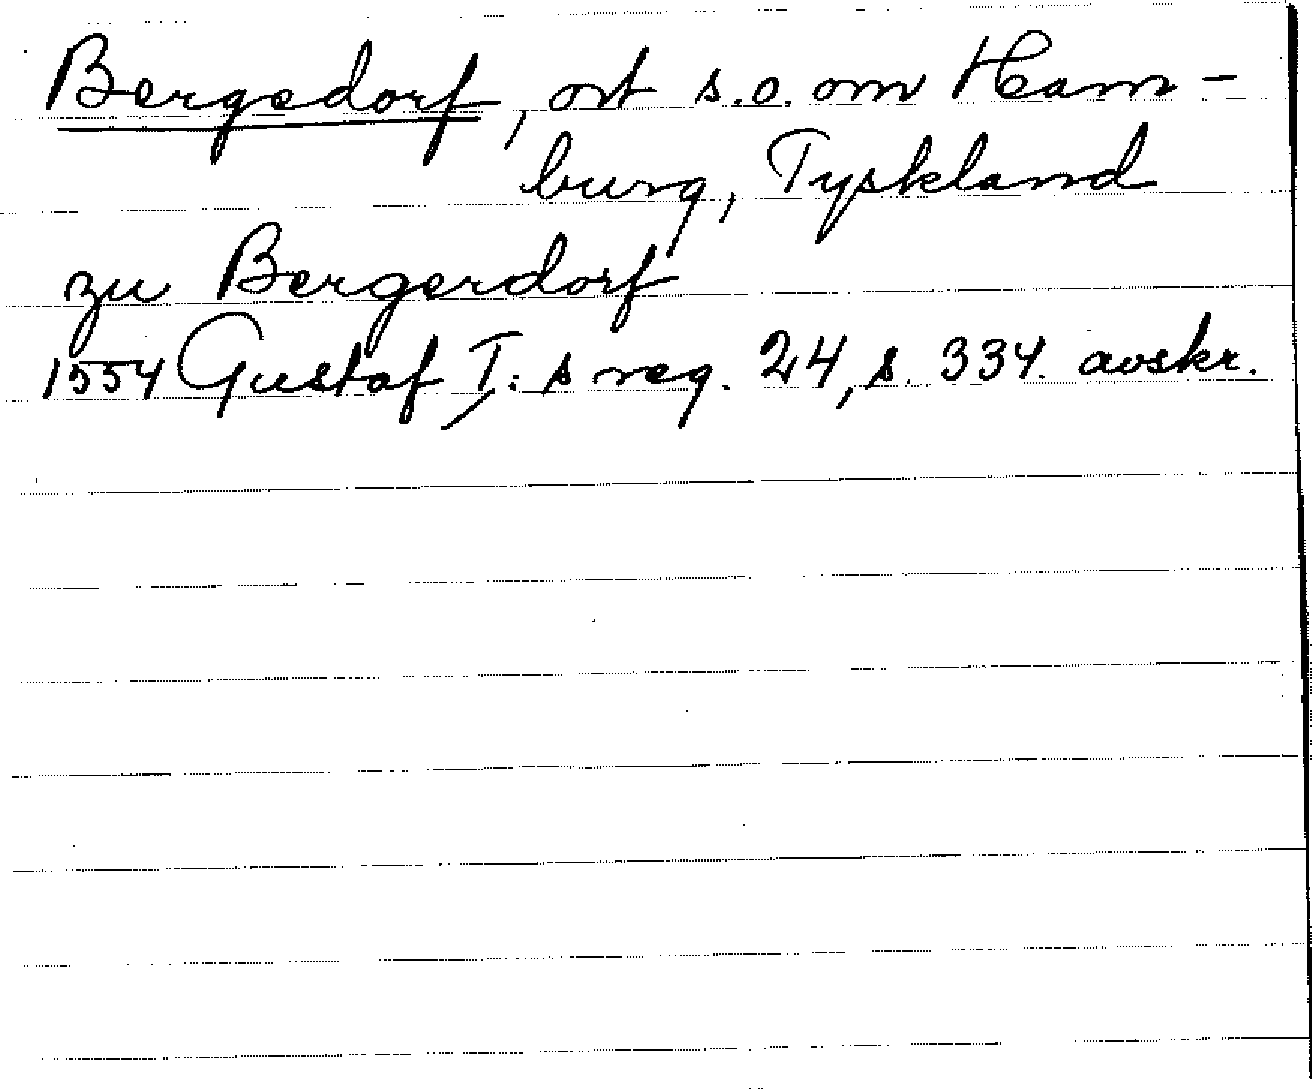 Bergedorf, ort s.o. om Ham-
burg, Tyskland
zu Bergerdorf
1554 Gustaf I:s reg. 24, s. 334. avskr.